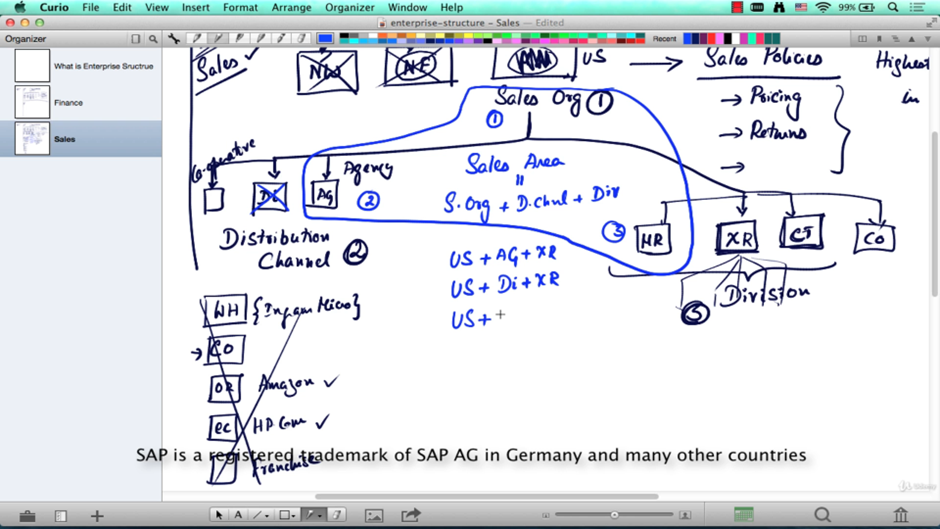 Curio File Edit View Insert Format Arrange Organizer Window Help 99%
enterprise-structure – Sales — Edited
Organizer
Recent
What is Enterprise Sructrue
Finance
Sales
Sales ✓
NW
NE
US
Sales Policies
Highest
→ Pricing
in
→ Returns
→
Sales Org ①
①
Co-operative
Agency
Sales Area
=
S.Org + D.Chnl + Div
Di
AG
②
③
MR
XR
CT
CO
Distribution
Channel ②
US + AG + XR
US + Di + XR
US +
Division
③
WH {Ingram Micro}
→ CO
OR Amazon ✓
ec HP Com ✓
Franchise
SAP is a registered trademark of SAP AG in Germany and many other countries
Udemy